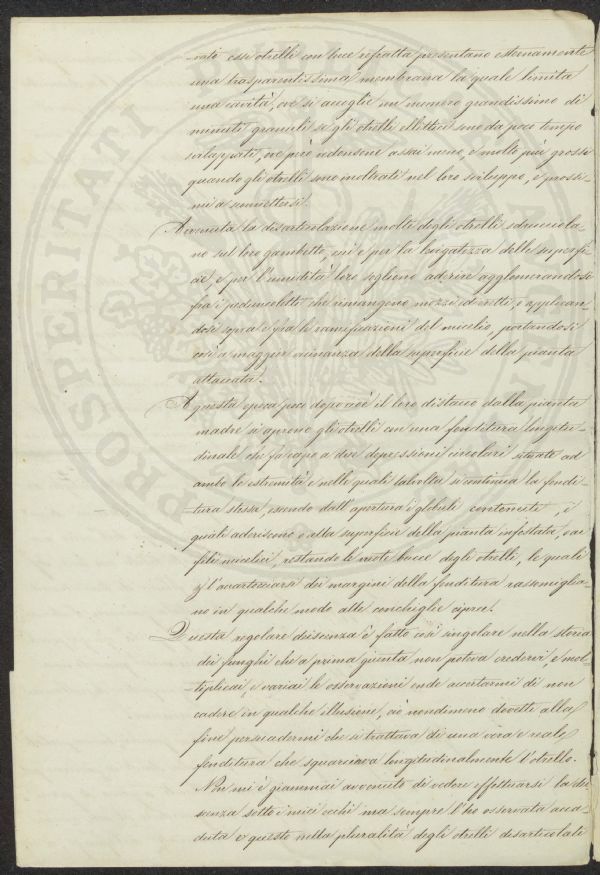 -rati essi otrelli con luce rifratta presentano esternamente
una trasparentissima membrana la quale limita
una cavità, ove si accoglie un numero grandissimo di
minuti granuli se gli otrelli ellittici sono da poco tempo
sviluppati, ve però ridensene assai meno, e molto più grossi
quando gli otrelli sono inoltrati nel loro sviluppo, e prossi-
mi a
Avvenuta la disarticolazione molti degli otrelli sdrucciola-
no sul loro gambetto, ed e per la levigatezza delle superfi-
cie, e per l'umidità loro sogliono aderire agglomerandosi
fra i peduncoletti che rimangono mozzi ed eretti, o applican-
dosi sopra e fra le ramificazioni del micelio, portandosi
così a maggior vicinanza della superficie della pianta
attaccata.
A questa epoca poco dopo cioè il loro distacco dalla pianta
madre si aprono gli otrelli con una fenditura longitu-
dinale che fa capo a due depressioni circolari situate ad
ambo le estremità e nelle quali talvolta si continua la fendi-
tura stessa, escendo dall'apertura i globuli contenuti, i
quali aderiscono o alla superficie della pianta infestata, o ai
fili micelici, restando le vuote bucce degli otrelli, le quali
p l'accartocciarsi dei margini della fenditura rassomiglia-
no in qualche modo alle conchiglie cipree.
Questa regolare deiscenza è fatto così singolare nella storia
dei funghi che a prima giunta non poteva credervi, e mol-
tiplicai, e variai le osservazioni onde accertarmi di non
cadere in qualche illusione, ciò nondimeno dovetti alla
fine persuadermi che si trattava di una vera e reale
fenditura che squarciava longitudinalmente l'otrello.
Non mi è giammai avvenuto di vedere effettuarsi la dei-
scenza sotto i miei occhi ma sempre l'ho osservata acca-
duta e questo nella pluralità degli otrelli disarticolati
PROSPERITATI